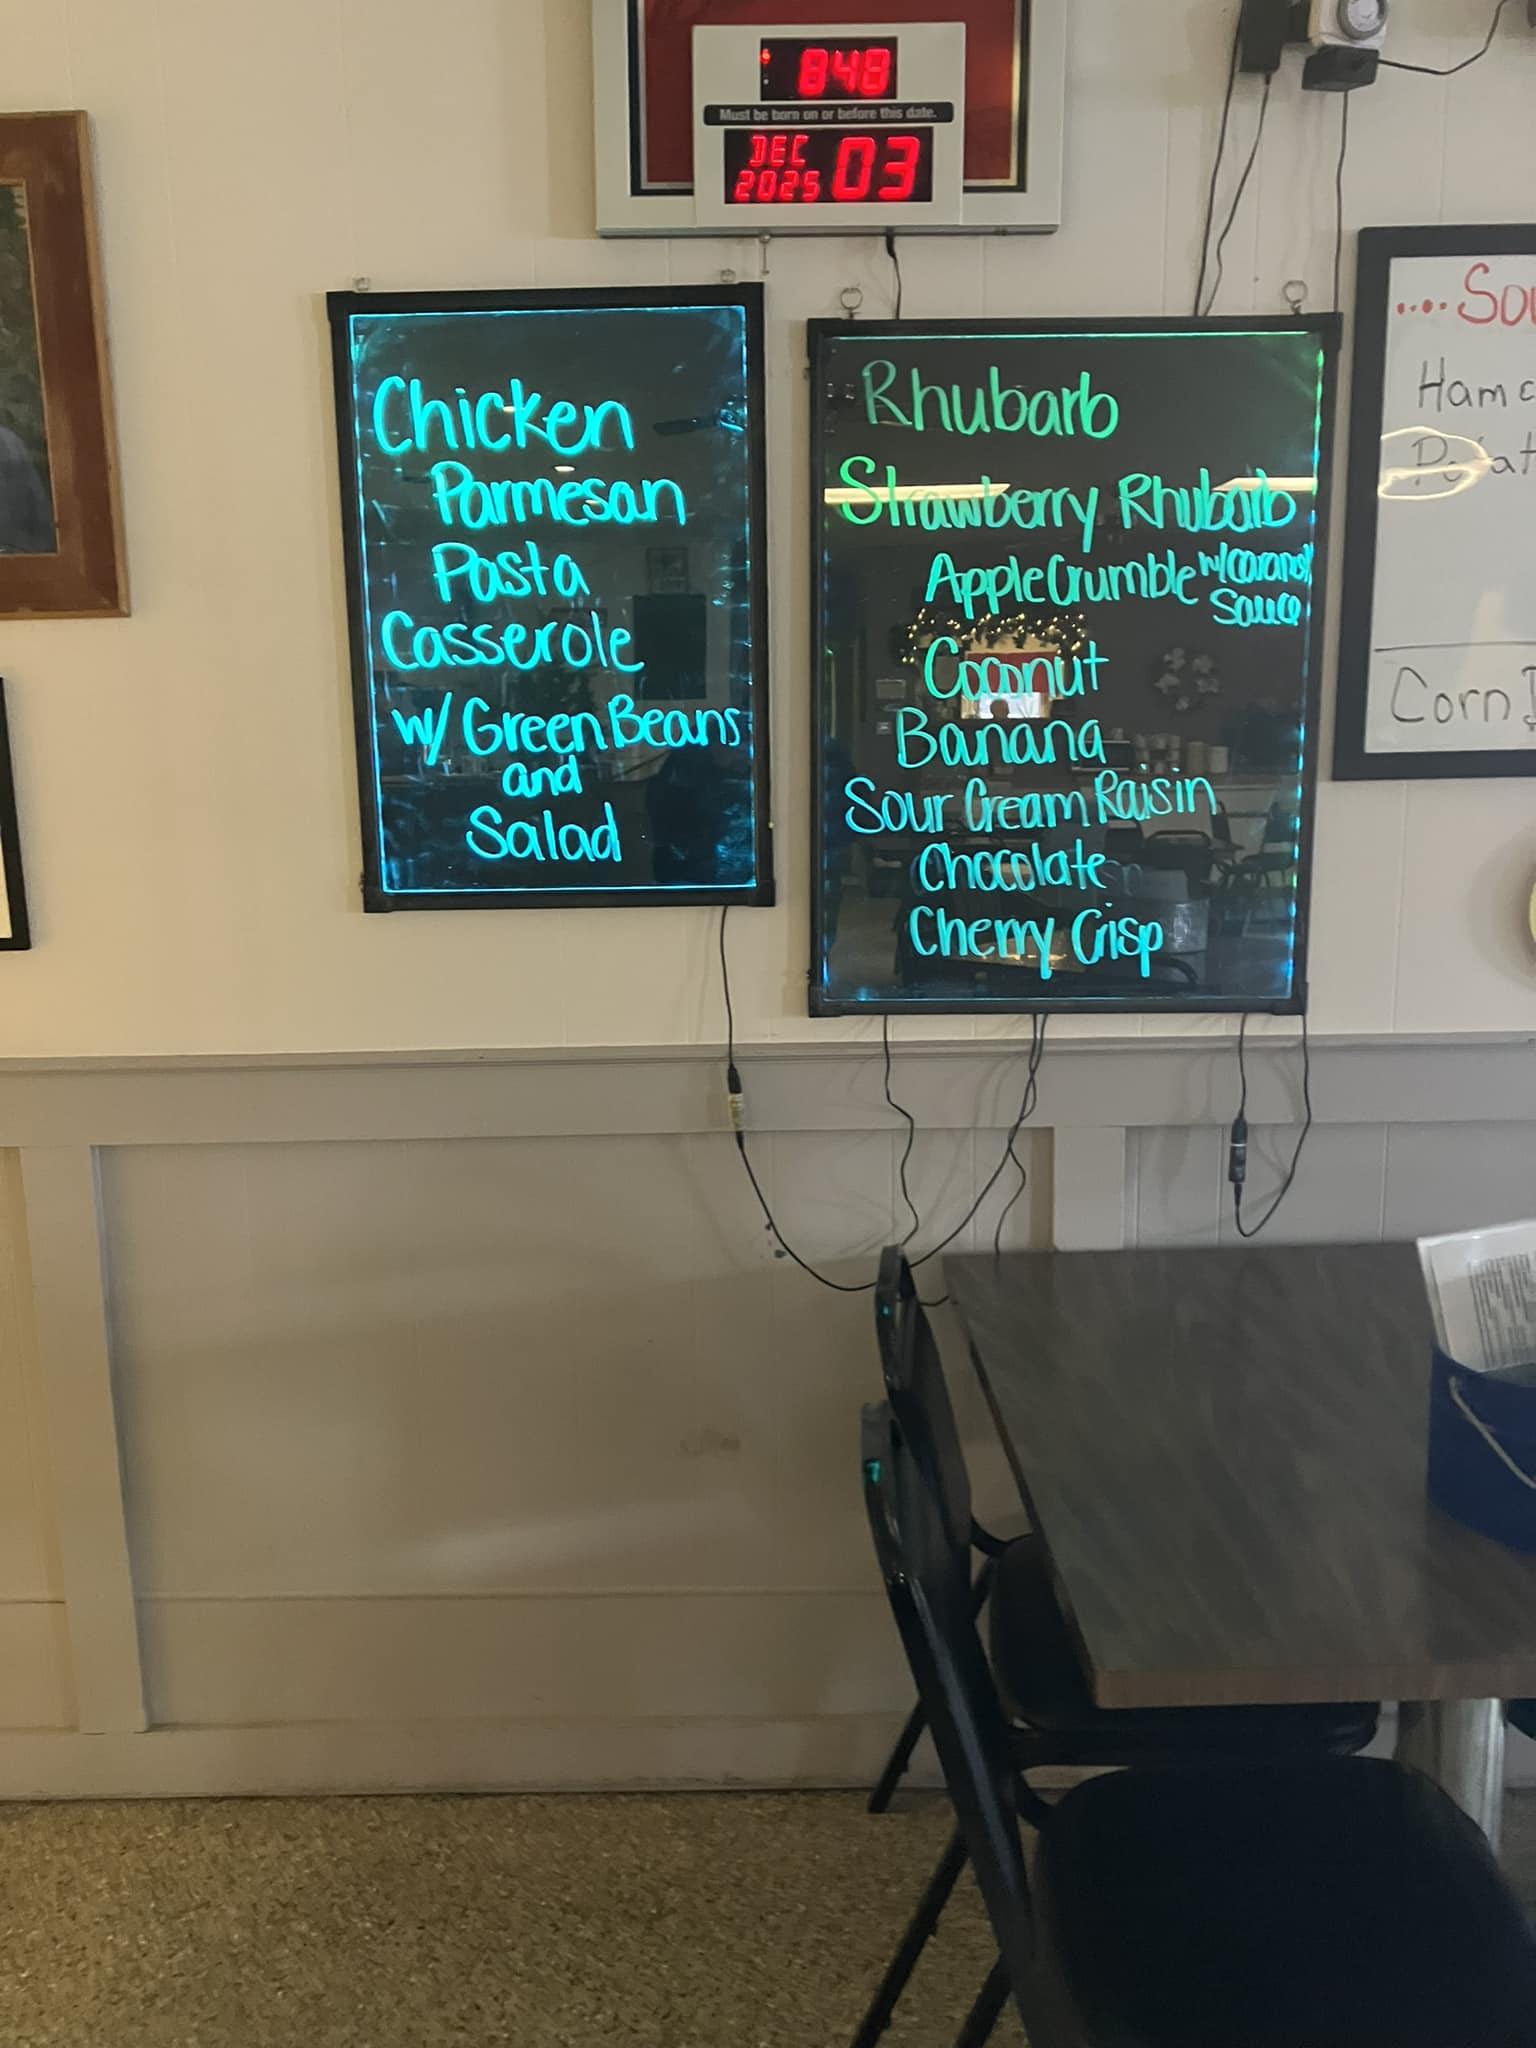 848
Must be born on or before this date.
DEC
2025 03
Chicken
Parmesan
Pasta
Casserole
w/ Green Beans
and
Salad
Rhubarb
Strawberry Rhubarb
Apple Crumble w/ caramel
Sauce
Coconut
Banana
Sour Cream Raisin
Chocolate
Cherry Crisp
.... Sou
Ham
Potat
Corn